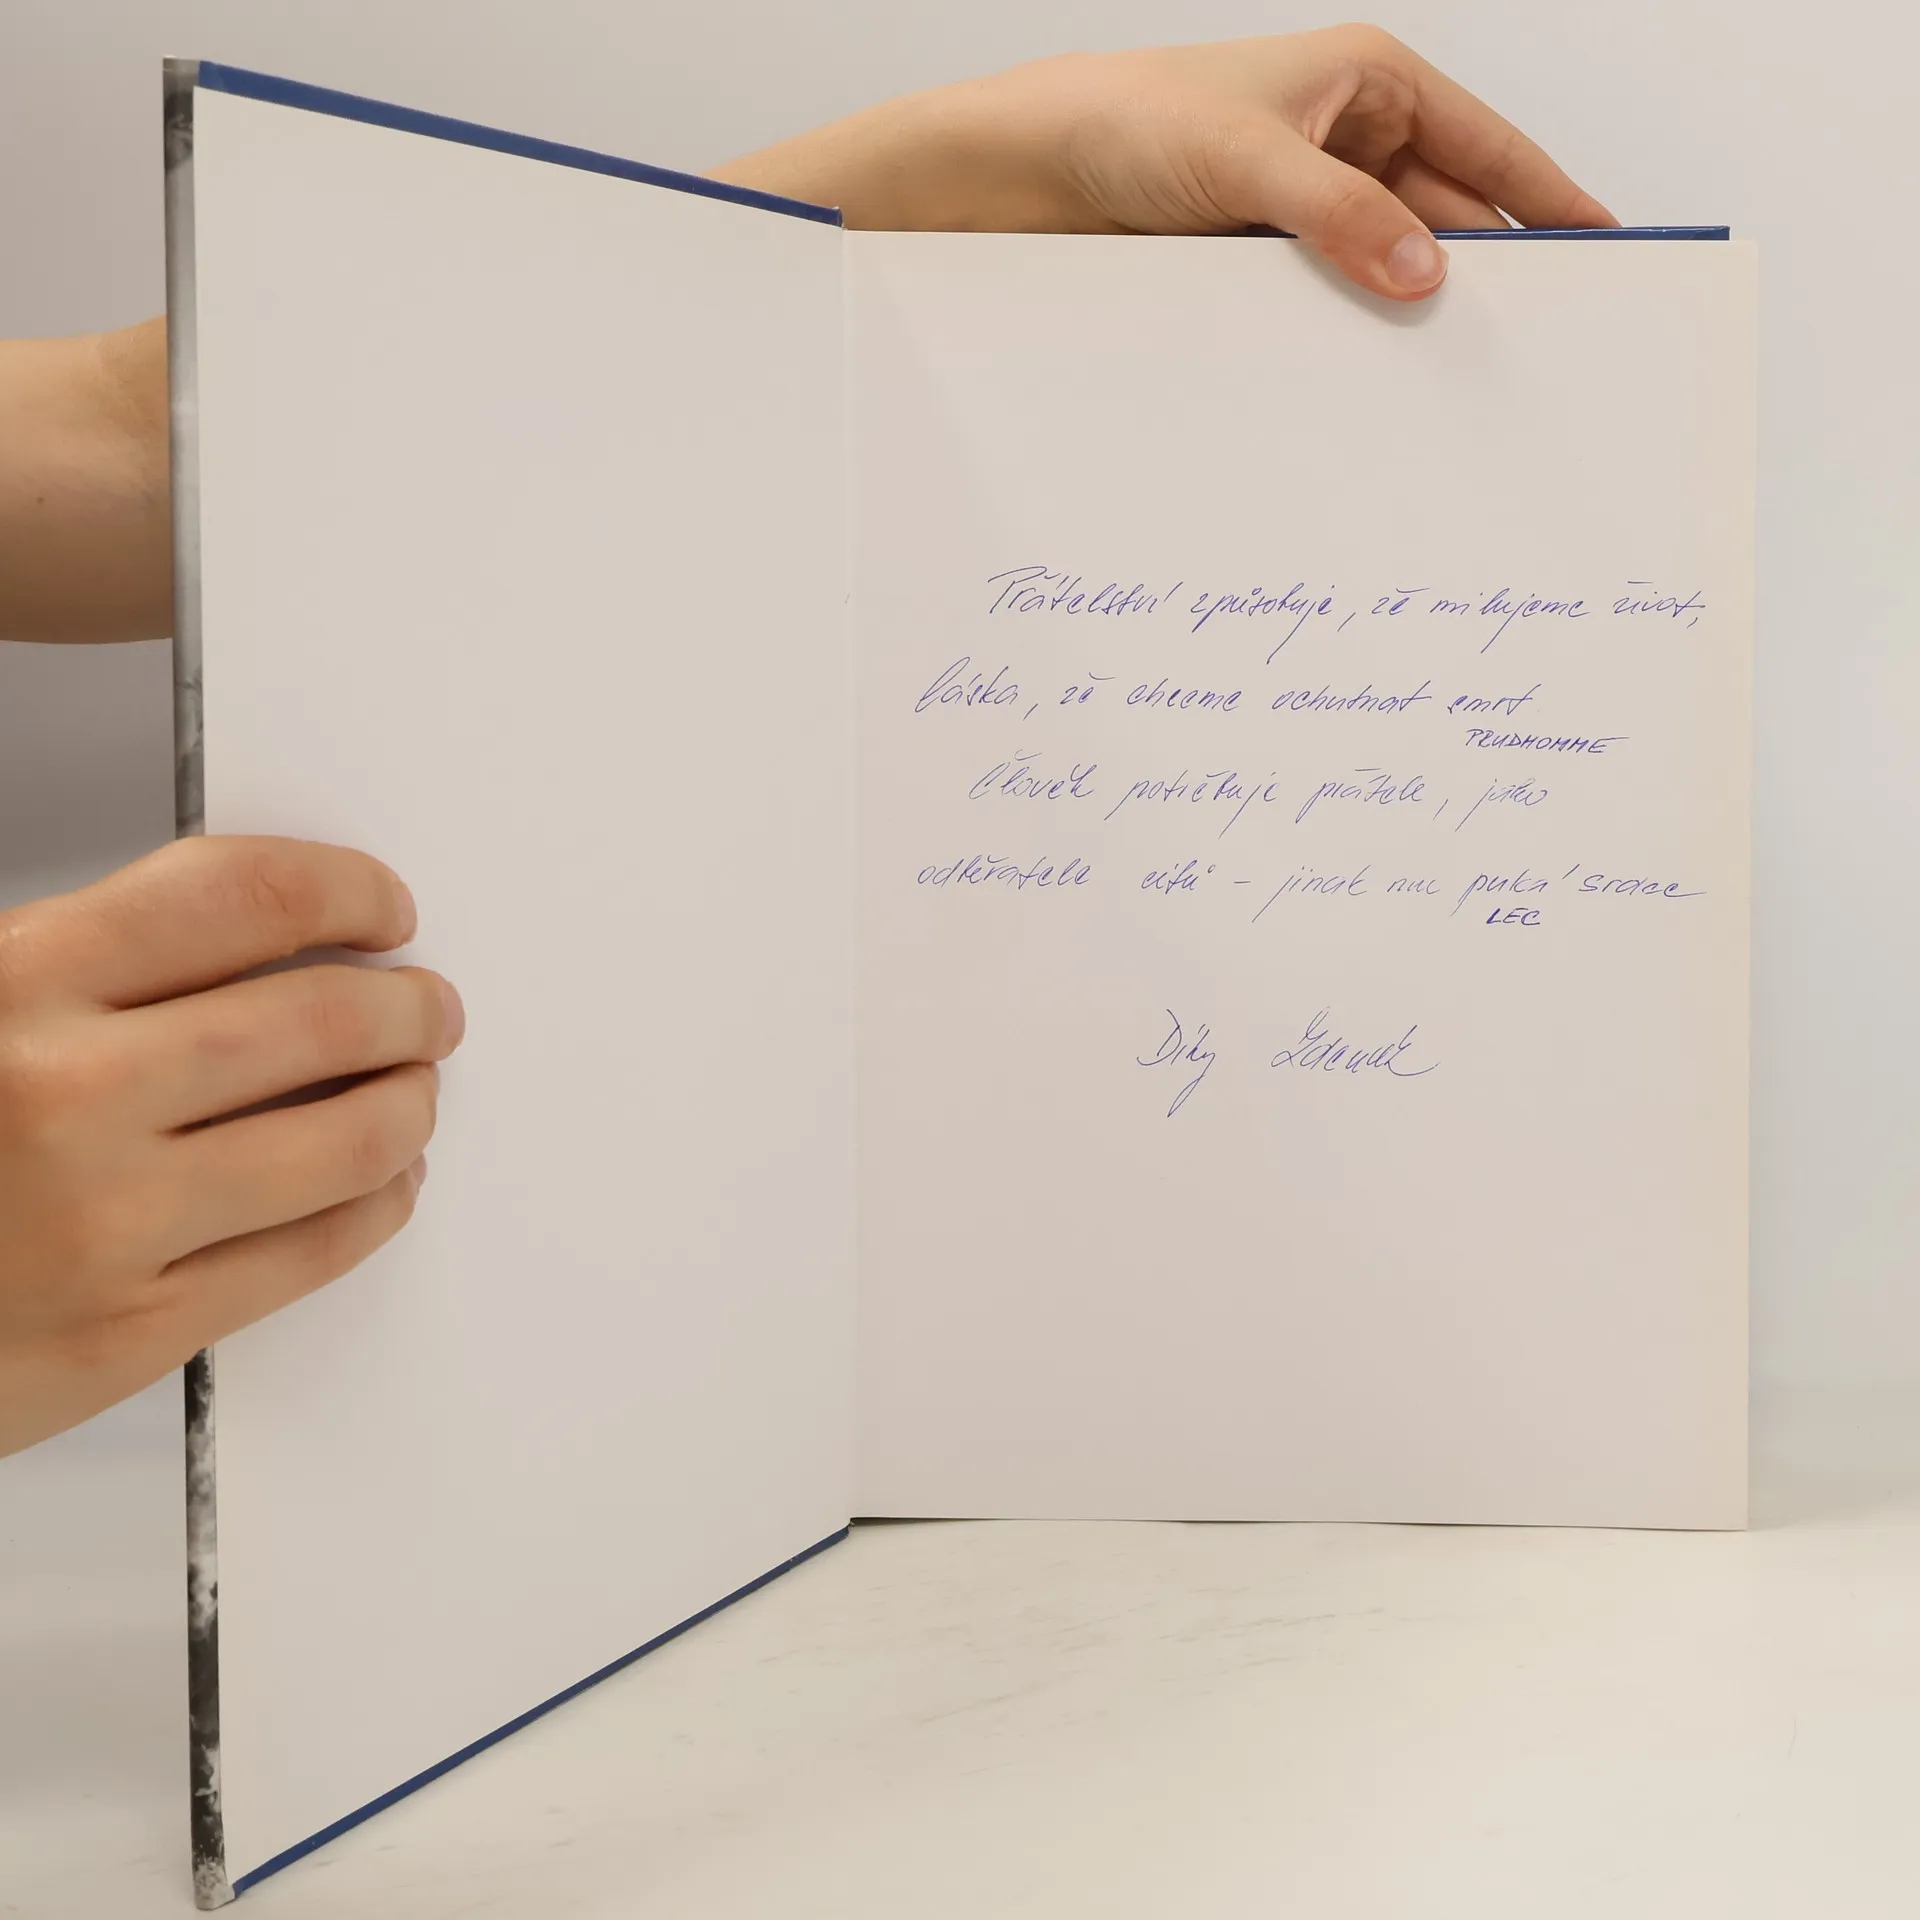 Přátelství způsobuje, že milujeme život,
láska, že chceme ochutnat smrt
PRUDHOMME
Člověk potřebuje přátele, jako
odběratele citů - jinak mu puká srdce
LEC
Díky Zdeněk